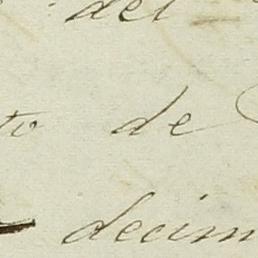 del
to de
decim